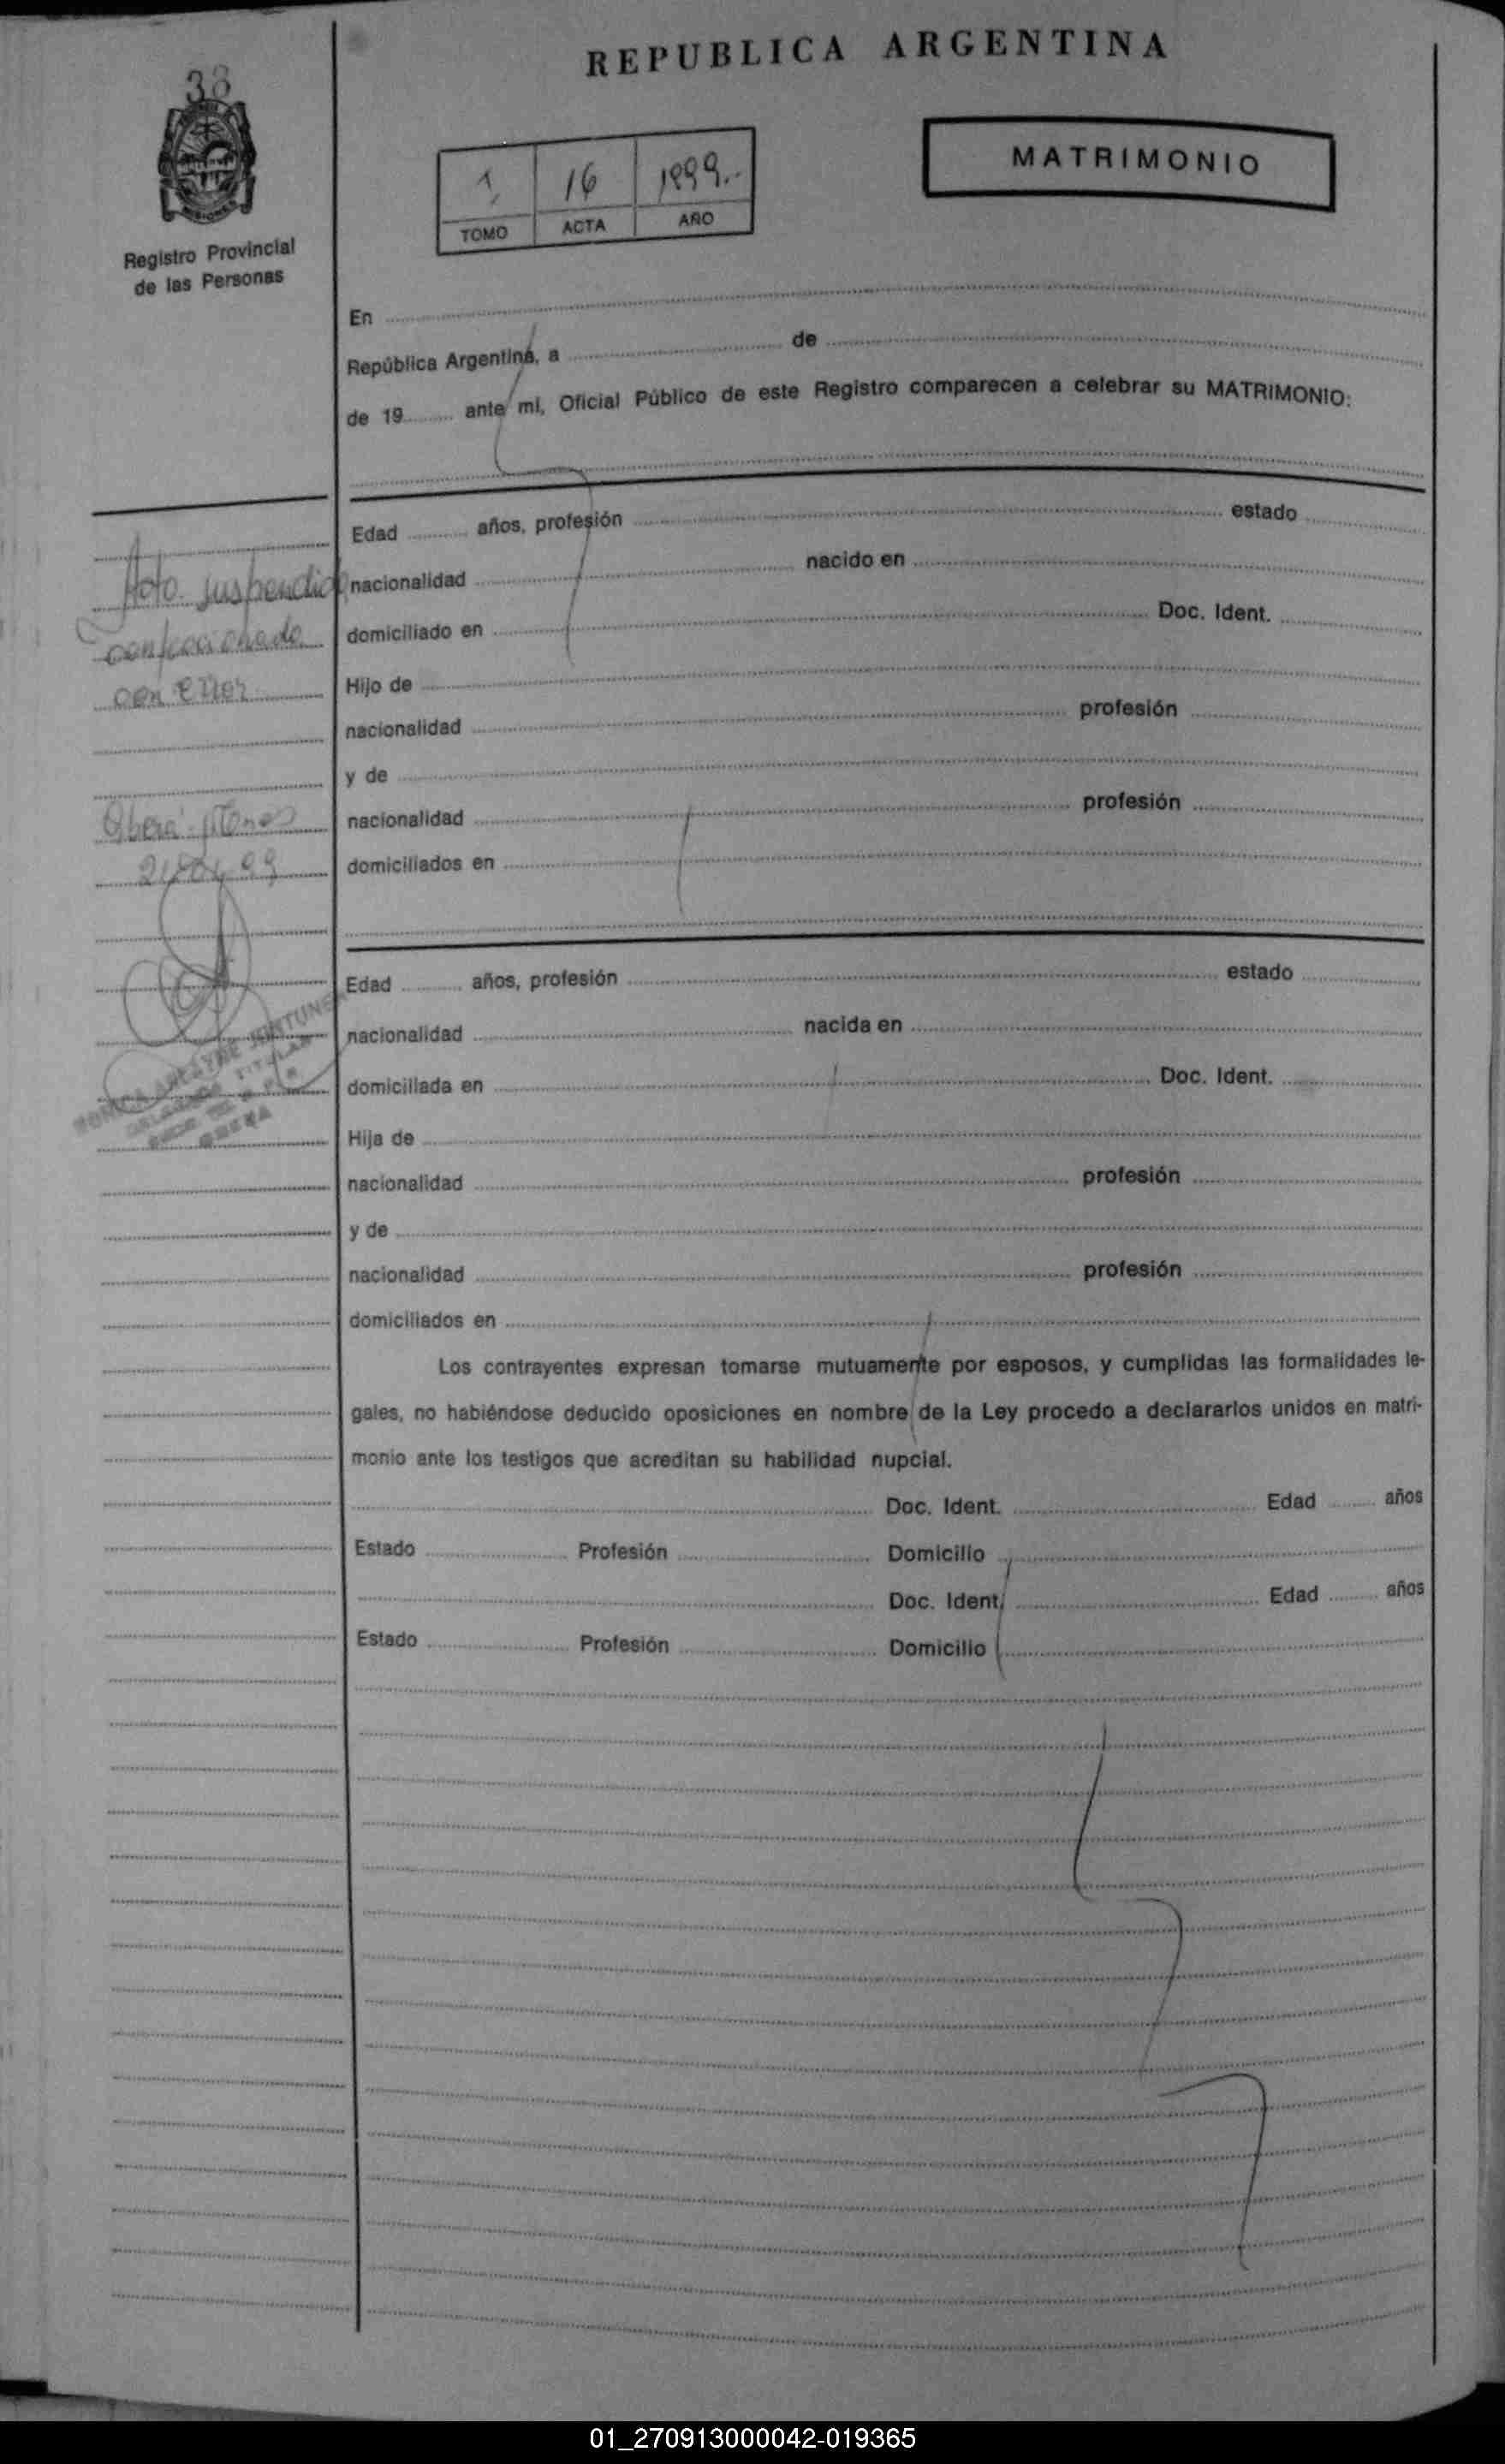 REPUBLICA ARGENTINA
38
MISIONES
Registro Provincial
de las Personas
1 16 1999.-
TOMO ACTA AÑO
MATRIMONIO
En
República Argentina, a de
de 19 ante mí, Oficial Público de este Registro comparecen a celebrar su MATRIMONIO:
Edad años, profesión estado
nacionalidad nacido en
domiciliado en Doc. Ident.
Hijo de
nacionalidad profesión
y de
nacionalidad profesión
domiciliados en
suspendido
confeccionada
con error
Oberá
99
Edad años, profesión estado
nacionalidad nacida en
domiciliada en Doc. Ident.
Hija de
nacionalidad profesión
y de
nacionalidad profesión
domiciliados en
TITULAR
OBERA
Los contrayentes expresan tomarse mutuamente por esposos, y cumplidas las formalidades le-
gales, no habiéndose deducido oposiciones en nombre de la Ley procedo a declararlos unidos en matri-
monio ante los testigos que acreditan su habilidad nupcial.
Doc. Ident. Edad años
Estado Profesión Domicilio
Doc. Ident. Edad años
Estado Profesión Domicilio
01_270913000042-019365